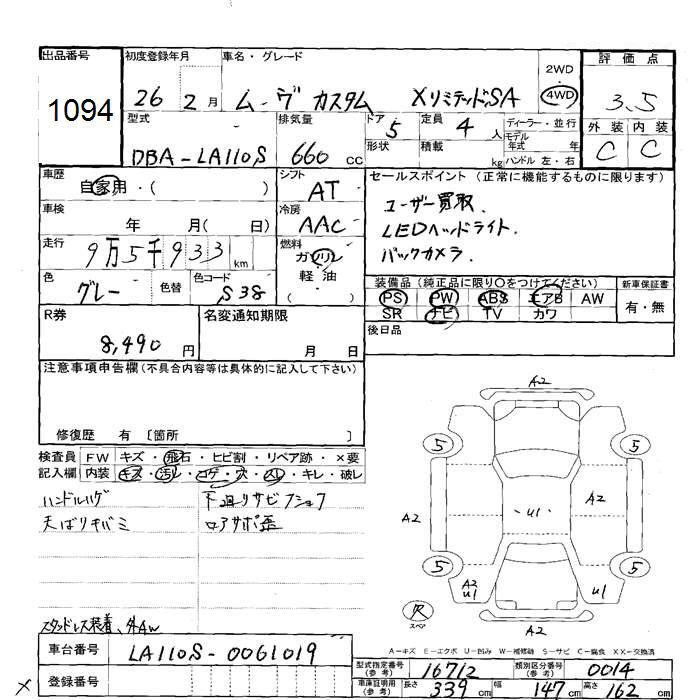 出品番号
1094
初度登録年月
26 2月
車名・グレード
ムーヴ カスタム XリミテッドSA
2WD
4WD
評価点
3.5
外装 内装
C C
型式
DBA-LA110S
排気量
660 cc
ドア
5
形状
定員
4 人
積載
kg
ディーラー・並行
モデル
年式 年
ハンドル 左・右
車歴
自家用・( )
シフト
AT
セールスポイント (正常に機能するものに限ります)
ユーザー買取.
LEDヘッドライト.
バックカメラ.
車検
年 月( 日)
冷房
AAC
走行
9万5千933 km
燃料
ガソリン
軽油
( )
色
グレー
色替
色コード
S38
装備品 (純正品に限り○をつけてください)
PS PW ABS エアB AW
SR ナビ TV カワ
新車保証書
有・無
R券
8,490 円
名変通知期限
月 日
後日品
注意事項申告欄(不具合内容等は具体的に記入して下さい)
修復歴 有 〔箇所 〕
検査員
記入欄
FW キズ・飛石・ヒビ割・リペア跡・×要
内装 キズ・汚レ・コゲ・穴・スレ・キレ・破レ
ハンドルハゲ
天ばりキバミ
下廻りサビフショク
ロアサポ歪
スタッドレス装着、外AW
A2
5 5
A2 U1 A2 A2
5 5
A2
U1
U1
A2
スペア
A-キズ E-エクボ U-凹み W-補修跡 S-サビ C-腐食 XX-交換済
車台番号
LA110S-0061019
登録番号
型式指定番号
(参考)
16712
類別区分番号
(参考)
0014
車庫証明用
(参考)
長さ 339 cm 幅 147 cm 高さ 162 cm
×